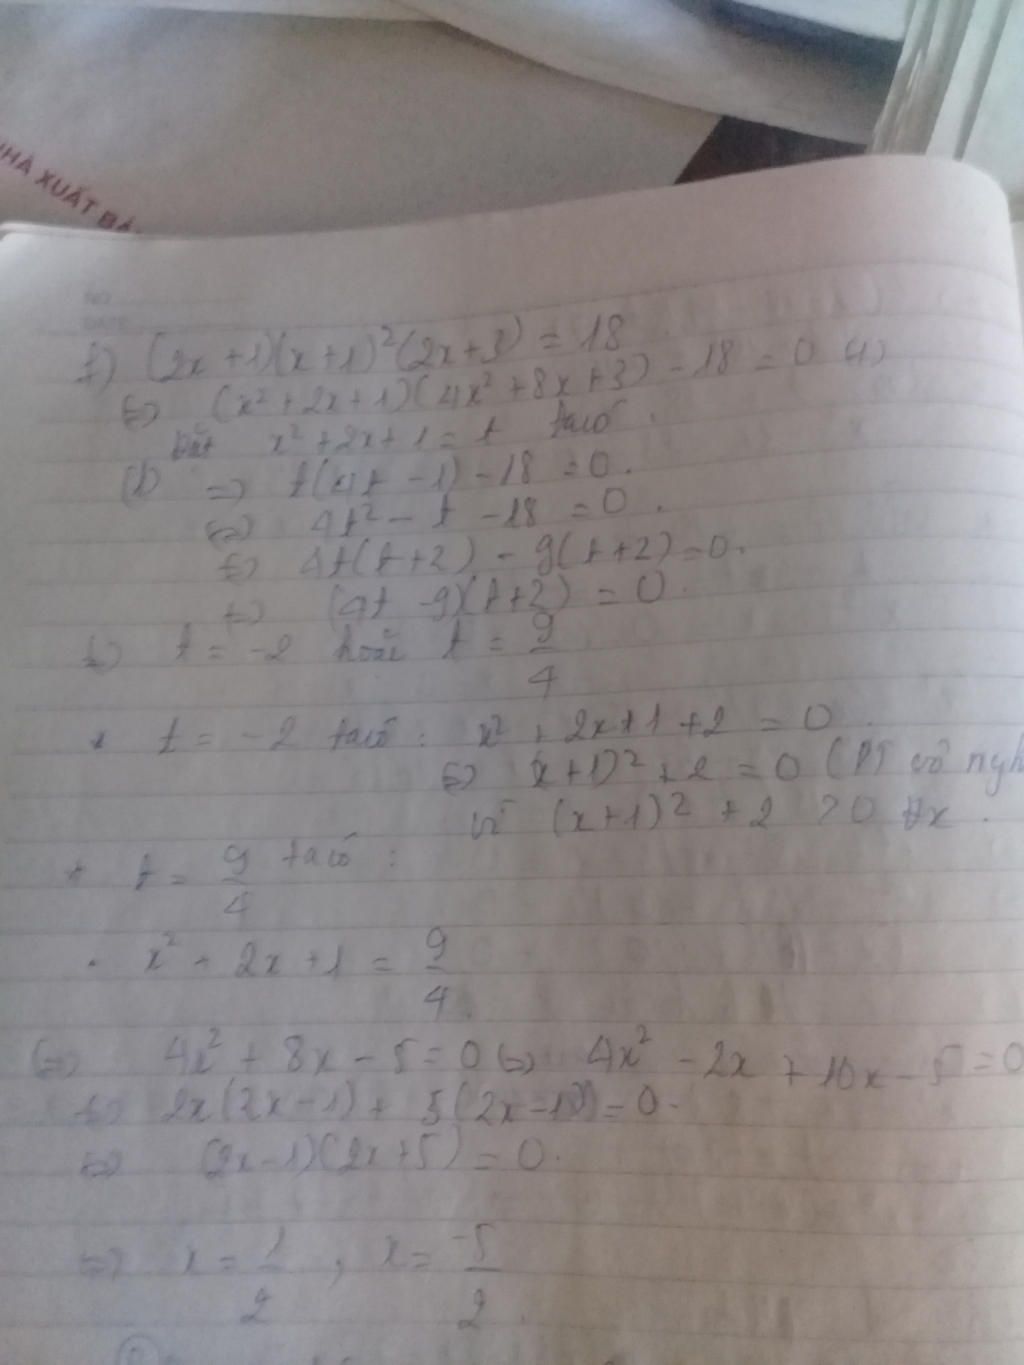 NHÀ XUẤT BẢ
NO
DATE
f) (2x+1)(x+1)²(2x+3) = 18
⇔ (x²+2x+1)(4x²+8x+3) - 18 = 0 (1)
Đặt x²+2x+1 = t ta có
(1) => t(4t - 1) - 18 = 0.
⇔ 4t² - t - 18 = 0.
⇔ 4t(t+2) - 9(t+2) = 0.
⇔ (4t - 9)(t+2) = 0.
⇔ t = -2 hoặc t = 9/4
* t = -2 ta có: x² + 2x+1+2 = 0.
⇔ (x+1)² + 2 = 0 (PT vô ngh
vì (x+1)² + 2 > 0 ∀x.
+ t = 9/4 ta có:
. x² + 2x + 1 = 9/4.
⇔ 4x² + 8x - 5 = 0 ⇔ 4x² - 2x + 10x - 5 = 0
⇔ 2x(2x-1) + 5(2x-1) = 0.
⇔ (2x-1)(2x+5) = 0.
=> x = 1/2, x = -5/2.